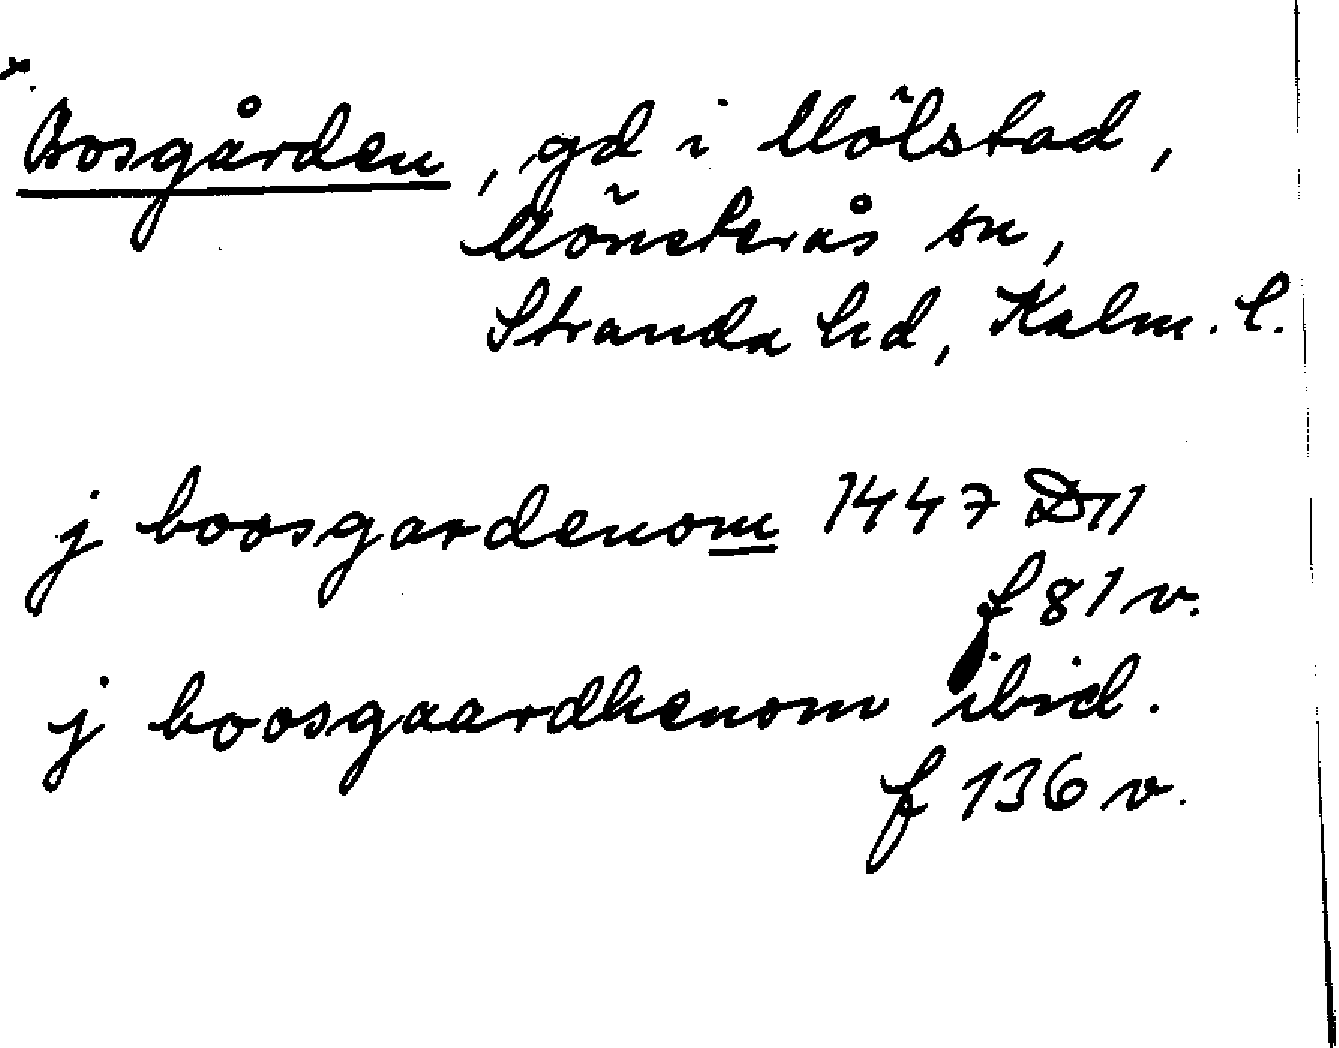 Bosgården, gd i Mölstad,
Mönsterås sn,
Stranda hd, Kalm. l.
j boosgardenom 1447 D11
f 81 v.
j boosgaardhenom ibid.
f 136 v.